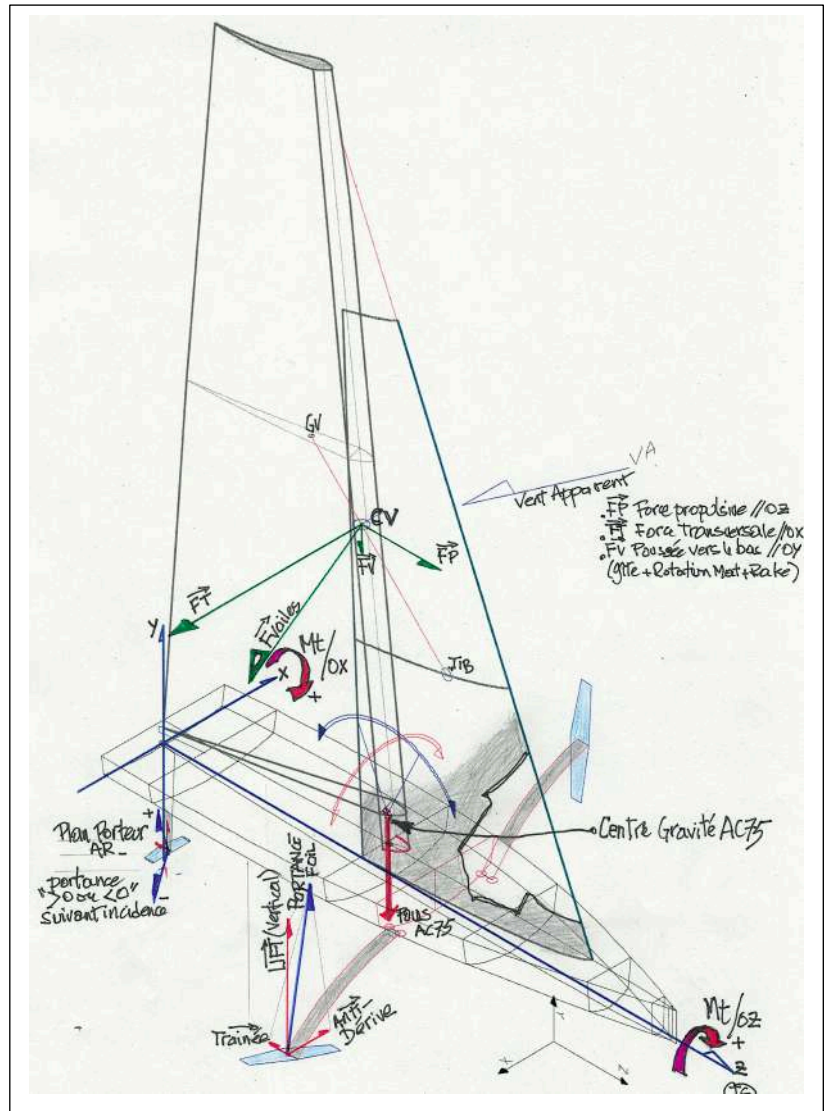 GV
VA
Vent Apparent
.FP Force propulsive //OZ
.FT Force Transversale //OX
.FV Poussée vers le bas //OY
(gîte + Rotation Mat + Rake)
CV
FV
FP
FT
Fvoiles
Mt
/OX
+
Y
X
JIB
Plan Porteur
AR
+
-
"portance
>0 ou <0"
suivant incidence
Centre Gravité AC75
POIDS
AC75
LIFT (Vertical)
PORTANCE
FOIL
Trainée
Anti-
Dérive
Y
X
Z
Mt/OZ
+
Z